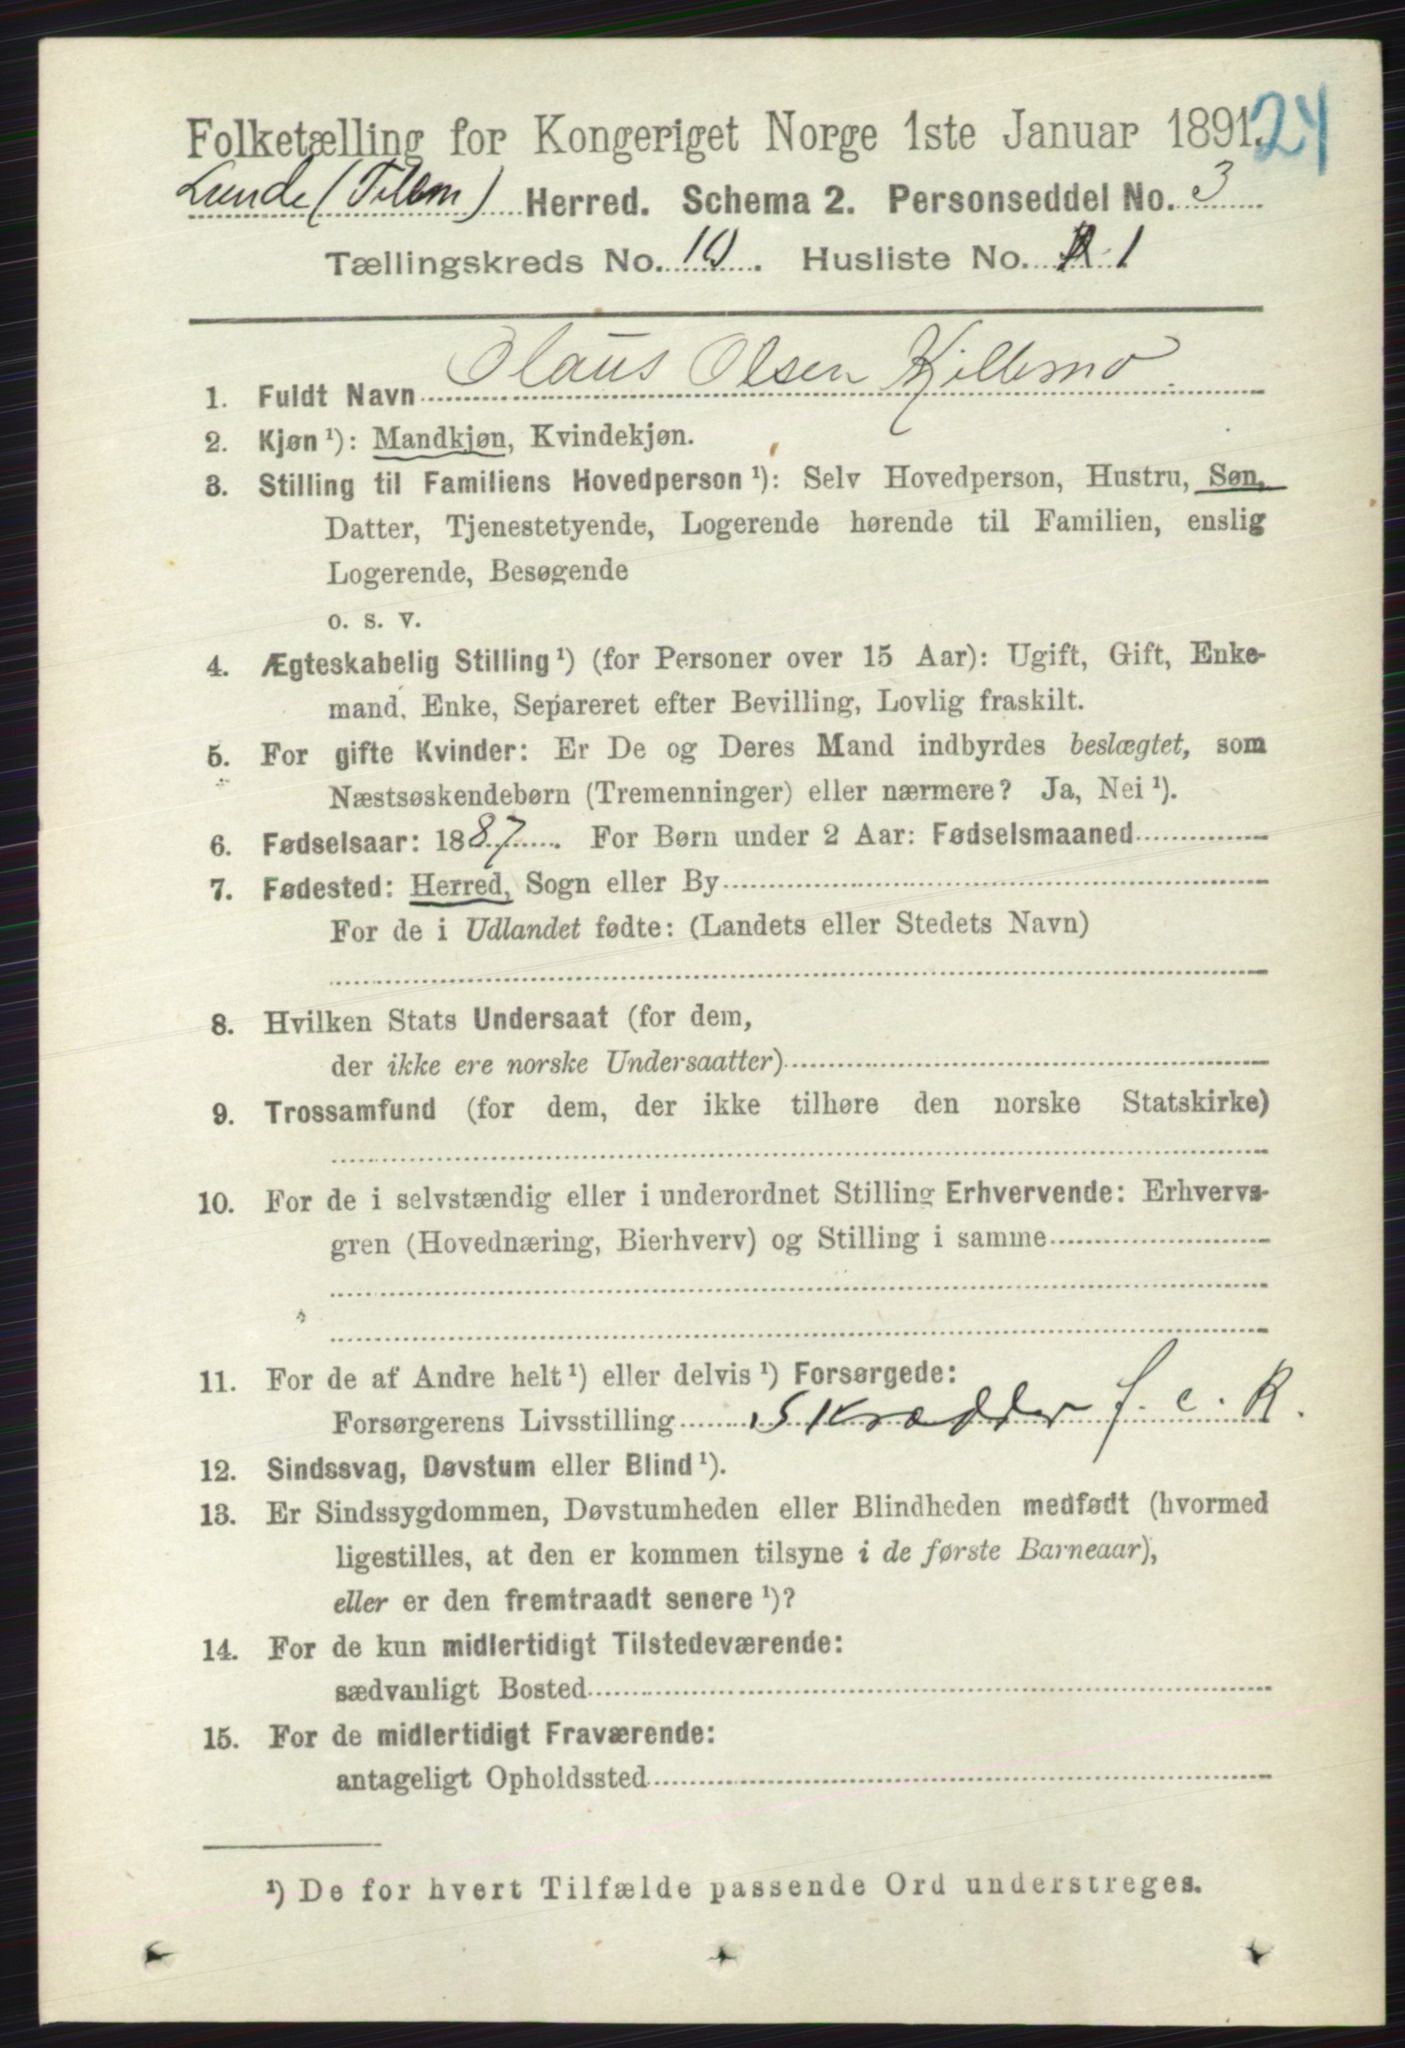 Folketælling for Kongeriget Norge 1ste Januar 1891. 24
Lunde (Telem) Herred. Schema 2. Personseddel No. 3
Tællingskreds No. 10. Husliste No. 1
1. Fuldt Navn Olaus Olsen Killemo.
2. Kjøn ¹): Mandkjøn, Kvindekjøn.
3. Stilling til Familiens Hovedperson ¹): Selv Hovedperson, Hustru, Søn,
Datter, Tjenestetyende, Logerende hørende til Familien, enslig
Logerende, Besøgende
o. s. v.
4. Ægteskabelig Stilling ¹) (for Personer over 15 Aar): Ugift, Gift, Enke-
mand, Enke, Separeret efter Bevilling, Lovlig fraskilt.
5. For gifte Kvinder: Er De og Deres Mand indbyrdes beslægtet, som
Næstsøskendebørn (Tremenninger) eller nærmere? Ja, Nei ¹).
6. Fødselsaar: 1887. For Børn under 2 Aar: Fødselsmaaned
7. Fødested: Herred, Sogn eller By
For de i Udlandet fødte: (Landets eller Stedets Navn)
8. Hvilken Stats Undersaat (for dem,
der ikke ere norske Undersaatter)
9. Trossamfund (for dem, der ikke tilhøre den norske Statskirke)
10. For de i selvstændig eller i underordnet Stilling Erhvervende: Erhvervs-
gren (Hovednæring, Bierhverv) og Stilling i samme
11. For de af Andre helt ¹) eller delvis ¹) Forsørgede:
Forsørgerens Livsstilling Skrædder f. e. R.
12. Sindssvag, Døvstum eller Blind ¹).
13. Er Sindssygdommen, Døvstumheden eller Blindheden medfødt (hvormed
ligestilles, at den er kommen tilsyne i de første Barneaar),
eller er den fremtraadt senere ¹)?
14. For de kun midlertidigt Tilstedeværende:
sædvanligt Bosted
15. For de midlertidigt Fraværende:
antageligt Opholdssted
¹) De for hvert Tilfælde passende Ord understreges.